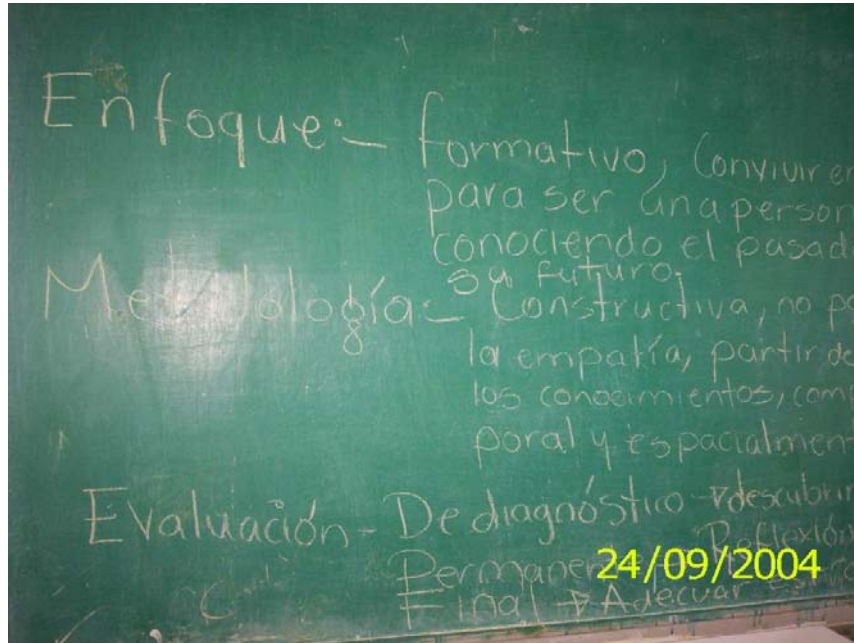 Enfoque:- formativo, Convivir en
para ser una person
conociendo el pasad
su futuro.
Metodología:- Constructiva, no p
la empatía, partir de
los conocimientos, com
poral y espacialment
Evaluación - De diagnóstico → descubrir
Permanen Reflexión
Final → Adecuar
24/09/2004